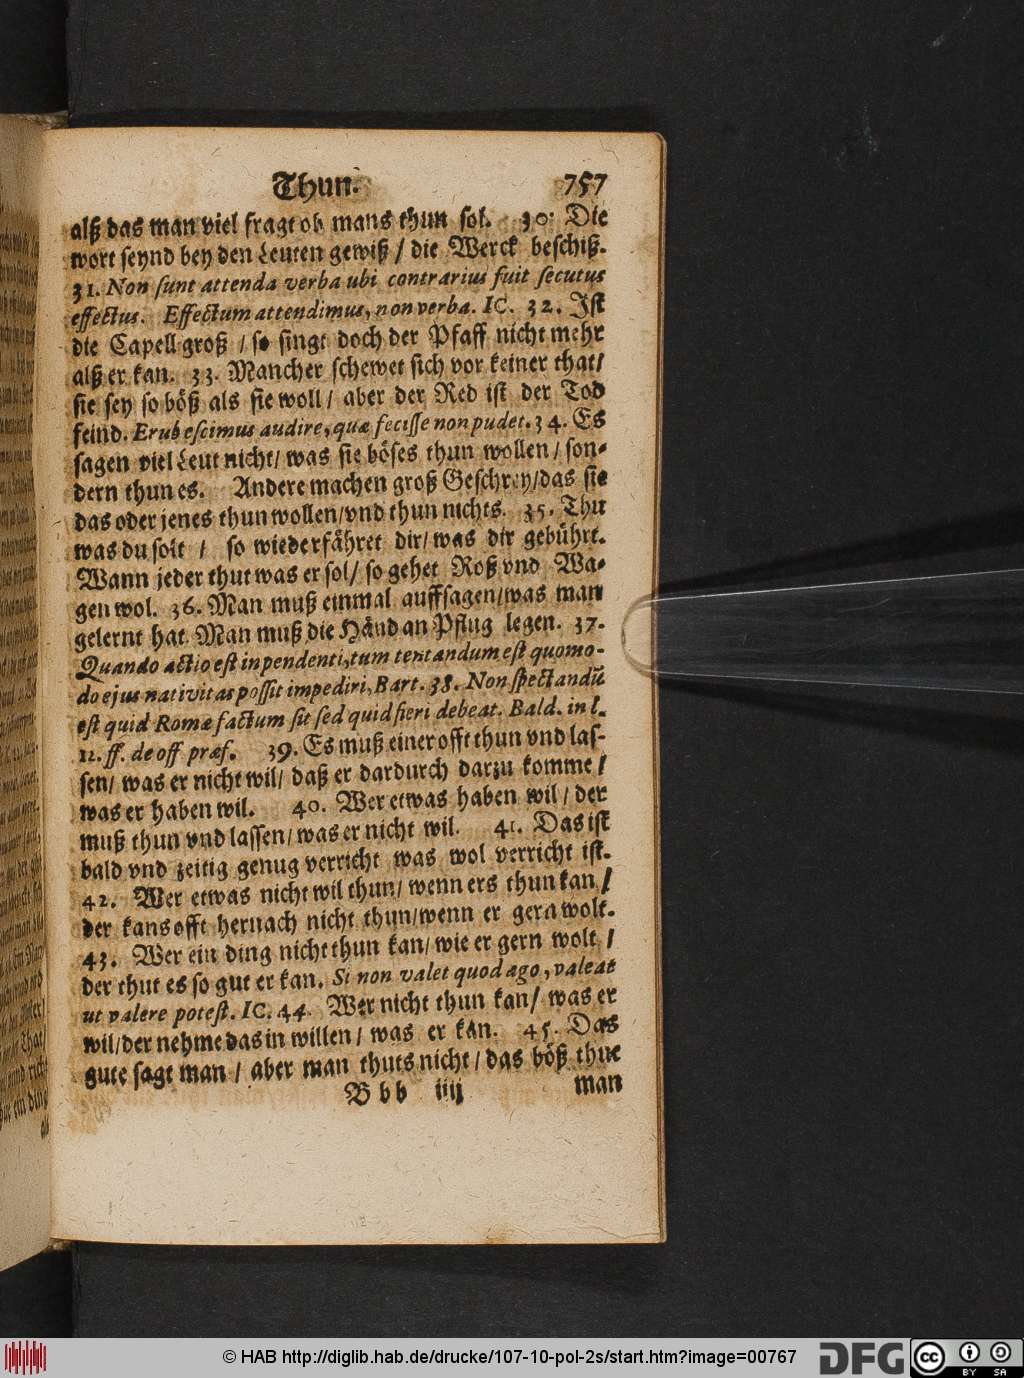 Thun. 757
alß das man viel fragt ob mans thun sol. 30. Die
wort seynd bey den Leuten gewiß / die Werck beschiß.
31. Non sunt attenda verba ubi contrarius fuit secutus
effectus. Effectum attendimus, non verba. IC. 32. Ist
die Capell groß / so singt doch der Pfaff nicht mehr
alß er kan. 33. Mancher schewet sich vor keiner that/
sie sey so böß als sie woll / aber der Red ist der Tod
feind. Erubescimus audire, quæ fecisse non pudet. 34. Es
sagen viel Leut nicht / was sie böses thun wollen / son-
dern thun es. Andere machen groß Geschrey/das sie
das oder jenes thun wollen/vnd thun nichts. 35. Thu
was du solt / so wiederfähret dir/ was dir gebührt.
Wann jeder thut was er sol/ so gehet Roß vnd Wa-
gen wol. 36. Man muß einmal auffsagen/was man
gelernt hat. Man muß die Händ an Pflug legen. 37.
Quando actio est in pendenti, tum tentandum est quomo-
do ejus nativitas possit impediri, Bart. 38. Non spectandū
est quid Romæ factum sit sed quid fieri debeat. Bald. in l.
12. ff. de off præf. 39. Es muß einer offt thun vnd las-
sen/ was er nicht wil/ daß er dardurch darzu komme /
was er haben wil. 40. Wer etwas haben wil / der
muß thun vnd lassen/ was er nicht wil. 41. Das ist
bald vnd zeitig genug verricht was wol verricht ist.
42. Wer etwas nicht wil thun/ wenn ers thun kan /
der kans offt hernach nicht thun/wenn er gern wolt.
43. Wer ein ding nicht thun kan/ wie er gern wolt /
der thut es so gut er kan. Si non valet quod ago, valeat
ut valere potest. IC. 44. Wer nicht thun kan/ was er
wil/der nehme das in willen / was er kan. 45. Das
gute sagt man / aber man thuts nicht / das böß thut
Bbb iiij man
© HAB http://diglib.hab.de/drucke/107-10-pol-2s/start.htm?image=00767
DFG
cc BY SA